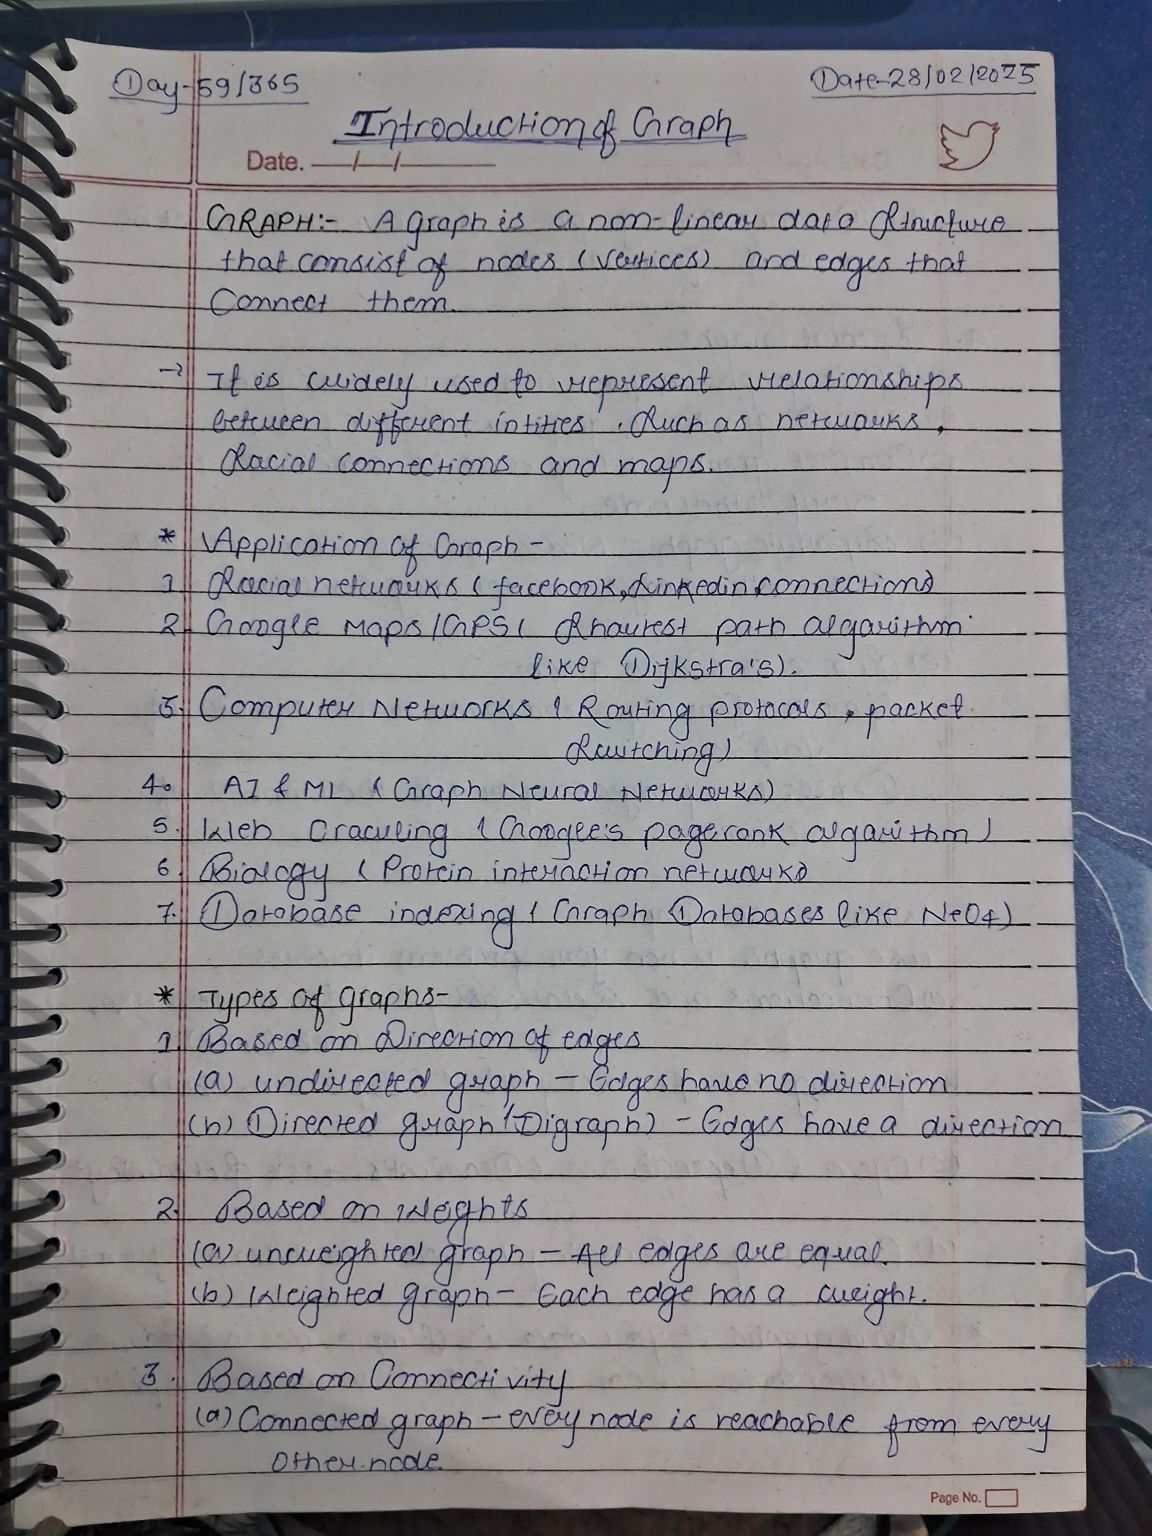 Day-59/365
Date-28/02/2025
Introduction of Graph
Date. __/__/____
GRAPH:- A graph is a non-linear data structure
that consist of nodes (vertices) and edges that
Connect them.
→ It is widely used to represent relationships
between different intities. Such as networks,
Social connections and maps.
* Application of Graph -
1. Social networks (facebook, Linkedin connection)
2. Google Maps/GPS( Shortest path algorithm
like Dijkstra's).
3. Computer Networks (Routing protocols, packet
Switching)
4. AI & ML (Graph Neural Networks)
5. Web Crawling (Google's pagerank algorithm)
6. Biology (Protein interaction network)
7. Database indexing (Graph Databases like NeO4)
* Types of graphs-
1. Based on Direction of edges
(a) undirected graph - Edges have no direction
(b) Directed graph (Digraph) - Edges have a direction
2. Based on Weights
(a) unweighted graph - All edges are equal.
(b) Weighted graph - Each edge has a weight.
3. Based on Connectivity
(a) Connected graph - every node is reachable from every
other node.
Page No.